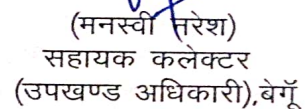 (मनस्वी नरेश)
सहायक कलेक्टर
(उपखण्ड अधिकारी),बेगूँ